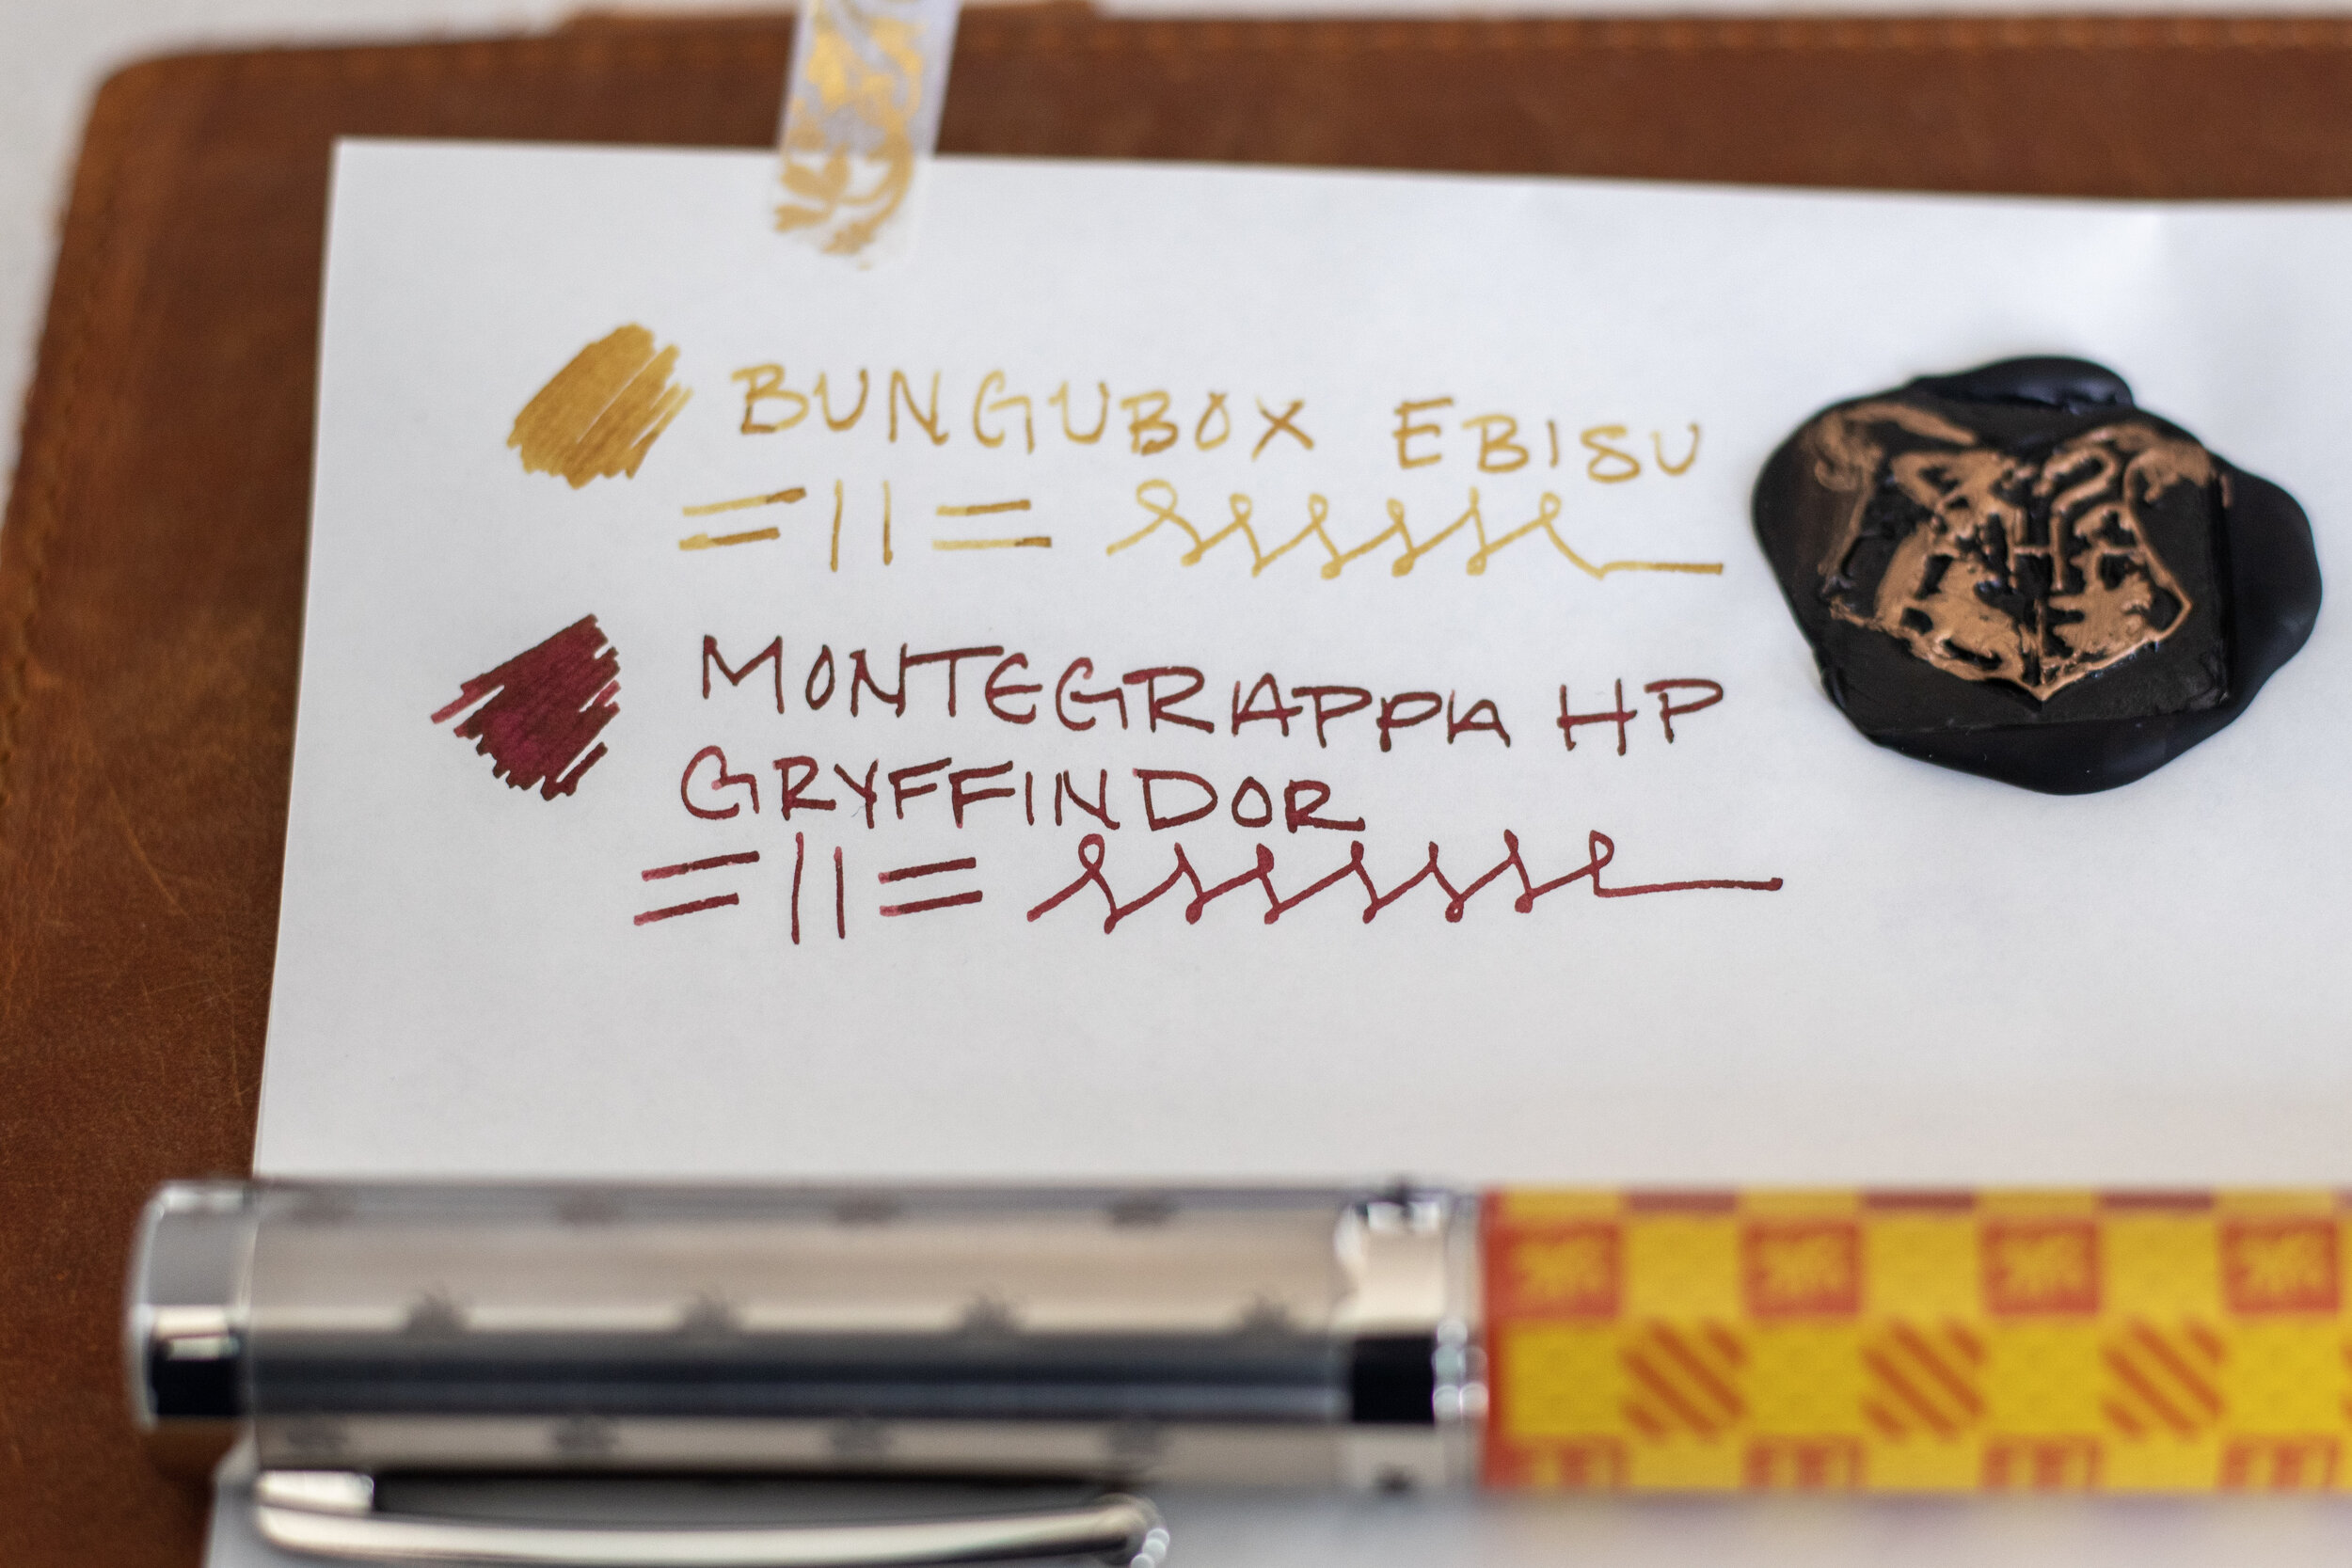 BUNGUBOX EBISU
MONTEGRAPPA HP
GRYFFINDOR